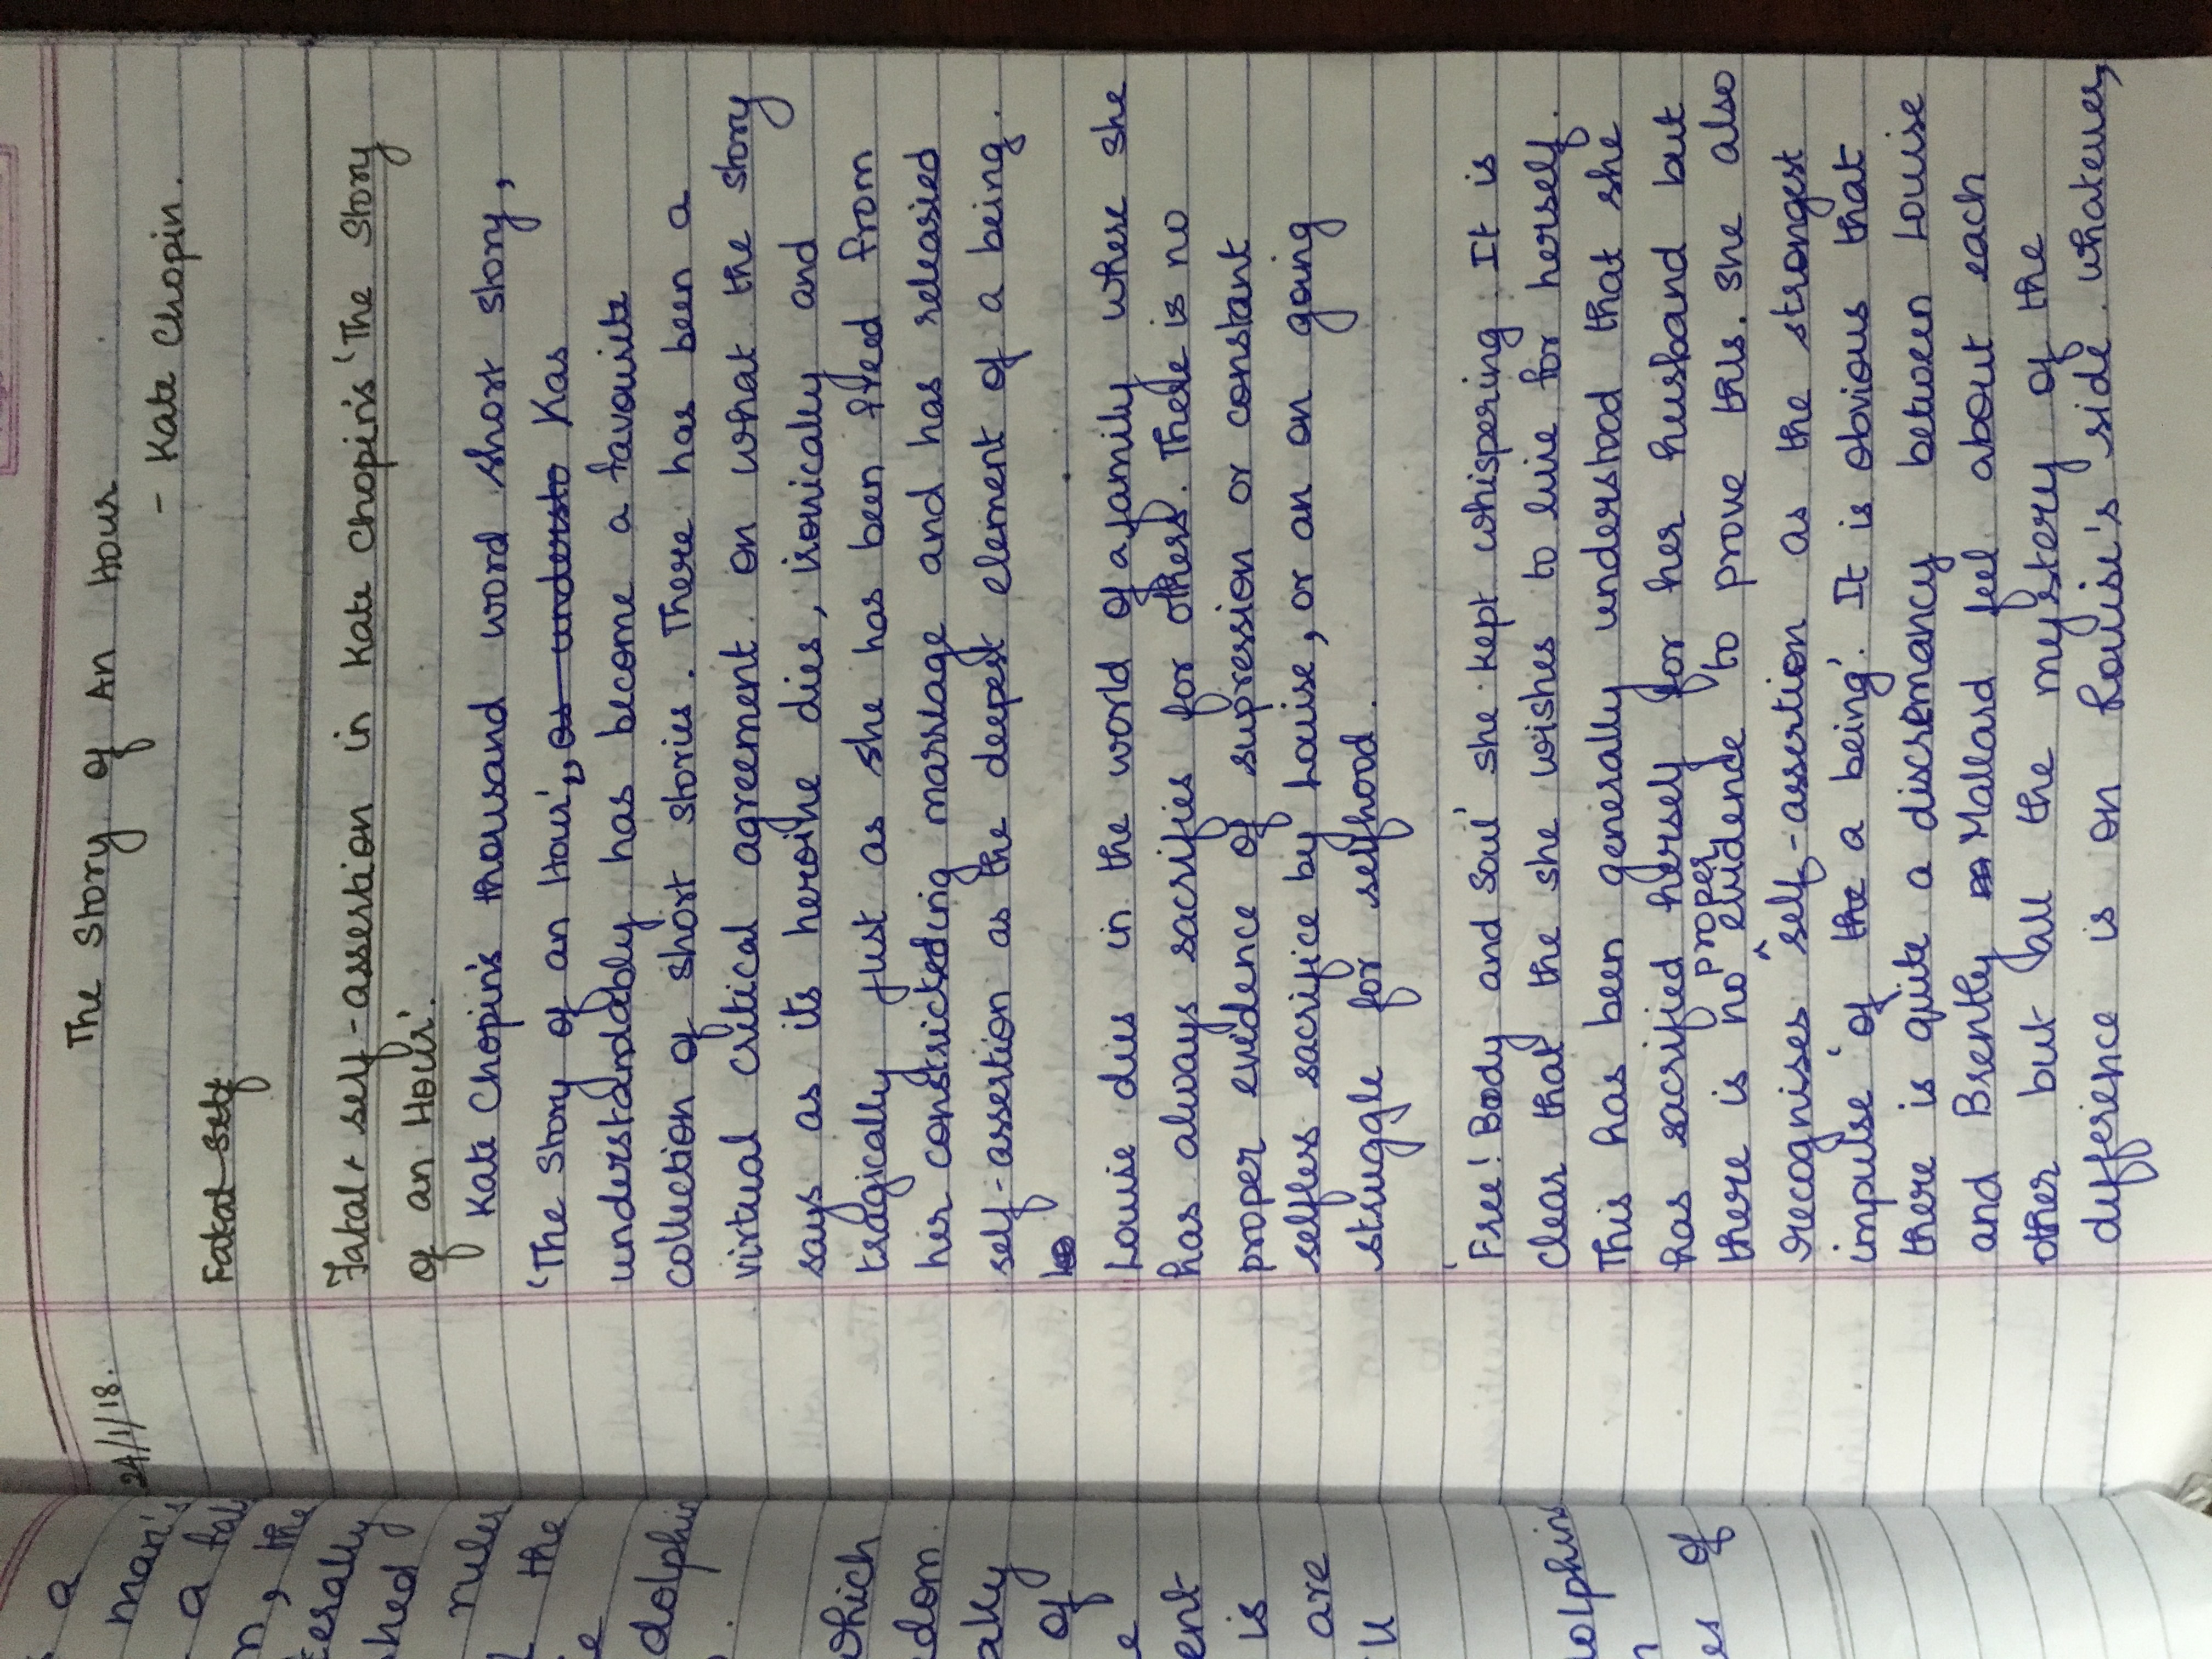 a
man's
a tal
n, the
terally
shed
ruler
the
e
dolphin
which
dom.
aky
of
e
ent
is
are
ll
dolphins
n
es of
24/1/18.
The Story of An Hour
- Kate Chopin.
Fatal self
Fatal self-assertion in Kate Chopin's 'The Story
of an Hour'.
Kate Chopin's thousand word short story,
'The Story of an Hour', as understo has
understandably has become a favourite
collection of short stories. There has been a
virtual critical agreement on what the story
says as its heroine dies, ironically and
tragically just as she has been freed from
her constricting marriage and has released
self-assertion as the deepest element of a being.
Lo
Louise dies in the world of a family where she
has always sacrifies for others. There is no
proper evidence of supression or constant
selfless sacrifice by Louise, or an on going
struggle for selfhood.
'Free! Body and Soul' she kept whispering. It is
clear that the she wishes to live for herself.
This has been generally understood that she
has sacrified herself for her husband but
there is no proper evidence to prove this. She also
recognises self-assertion as the strongest
impulse 'of the a being'. It is obvious that
there is quite a discremancy between Louise
and Brently m Mallard feel about each
other but all the mystery of the
difference is on Louise's side. Whatever,